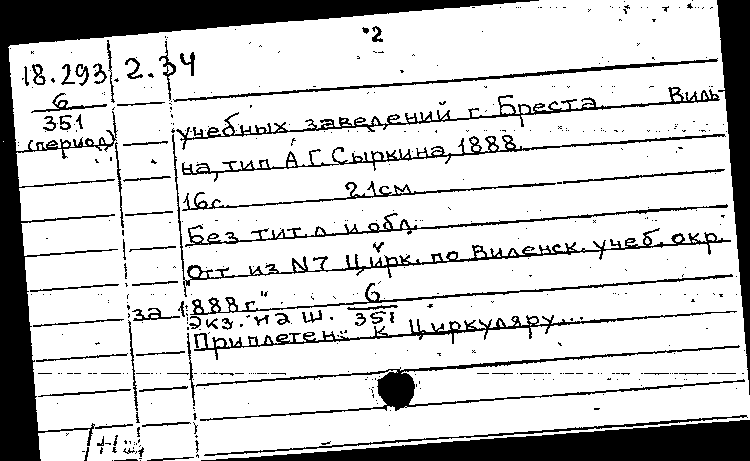 2
18.293.2.34
6
351
(период)
учебных заведений г. Бреста. Виль-
на, тип. А.Г. Сыркина, 1888.
16 с. 21 см.
Без тит. л и обл.
Отт. из N7 "Цирк. по Виленск. учеб. окр.
за 1888 г."
Экз. на ш. 6
351
Приплетен: к Циркуляру...